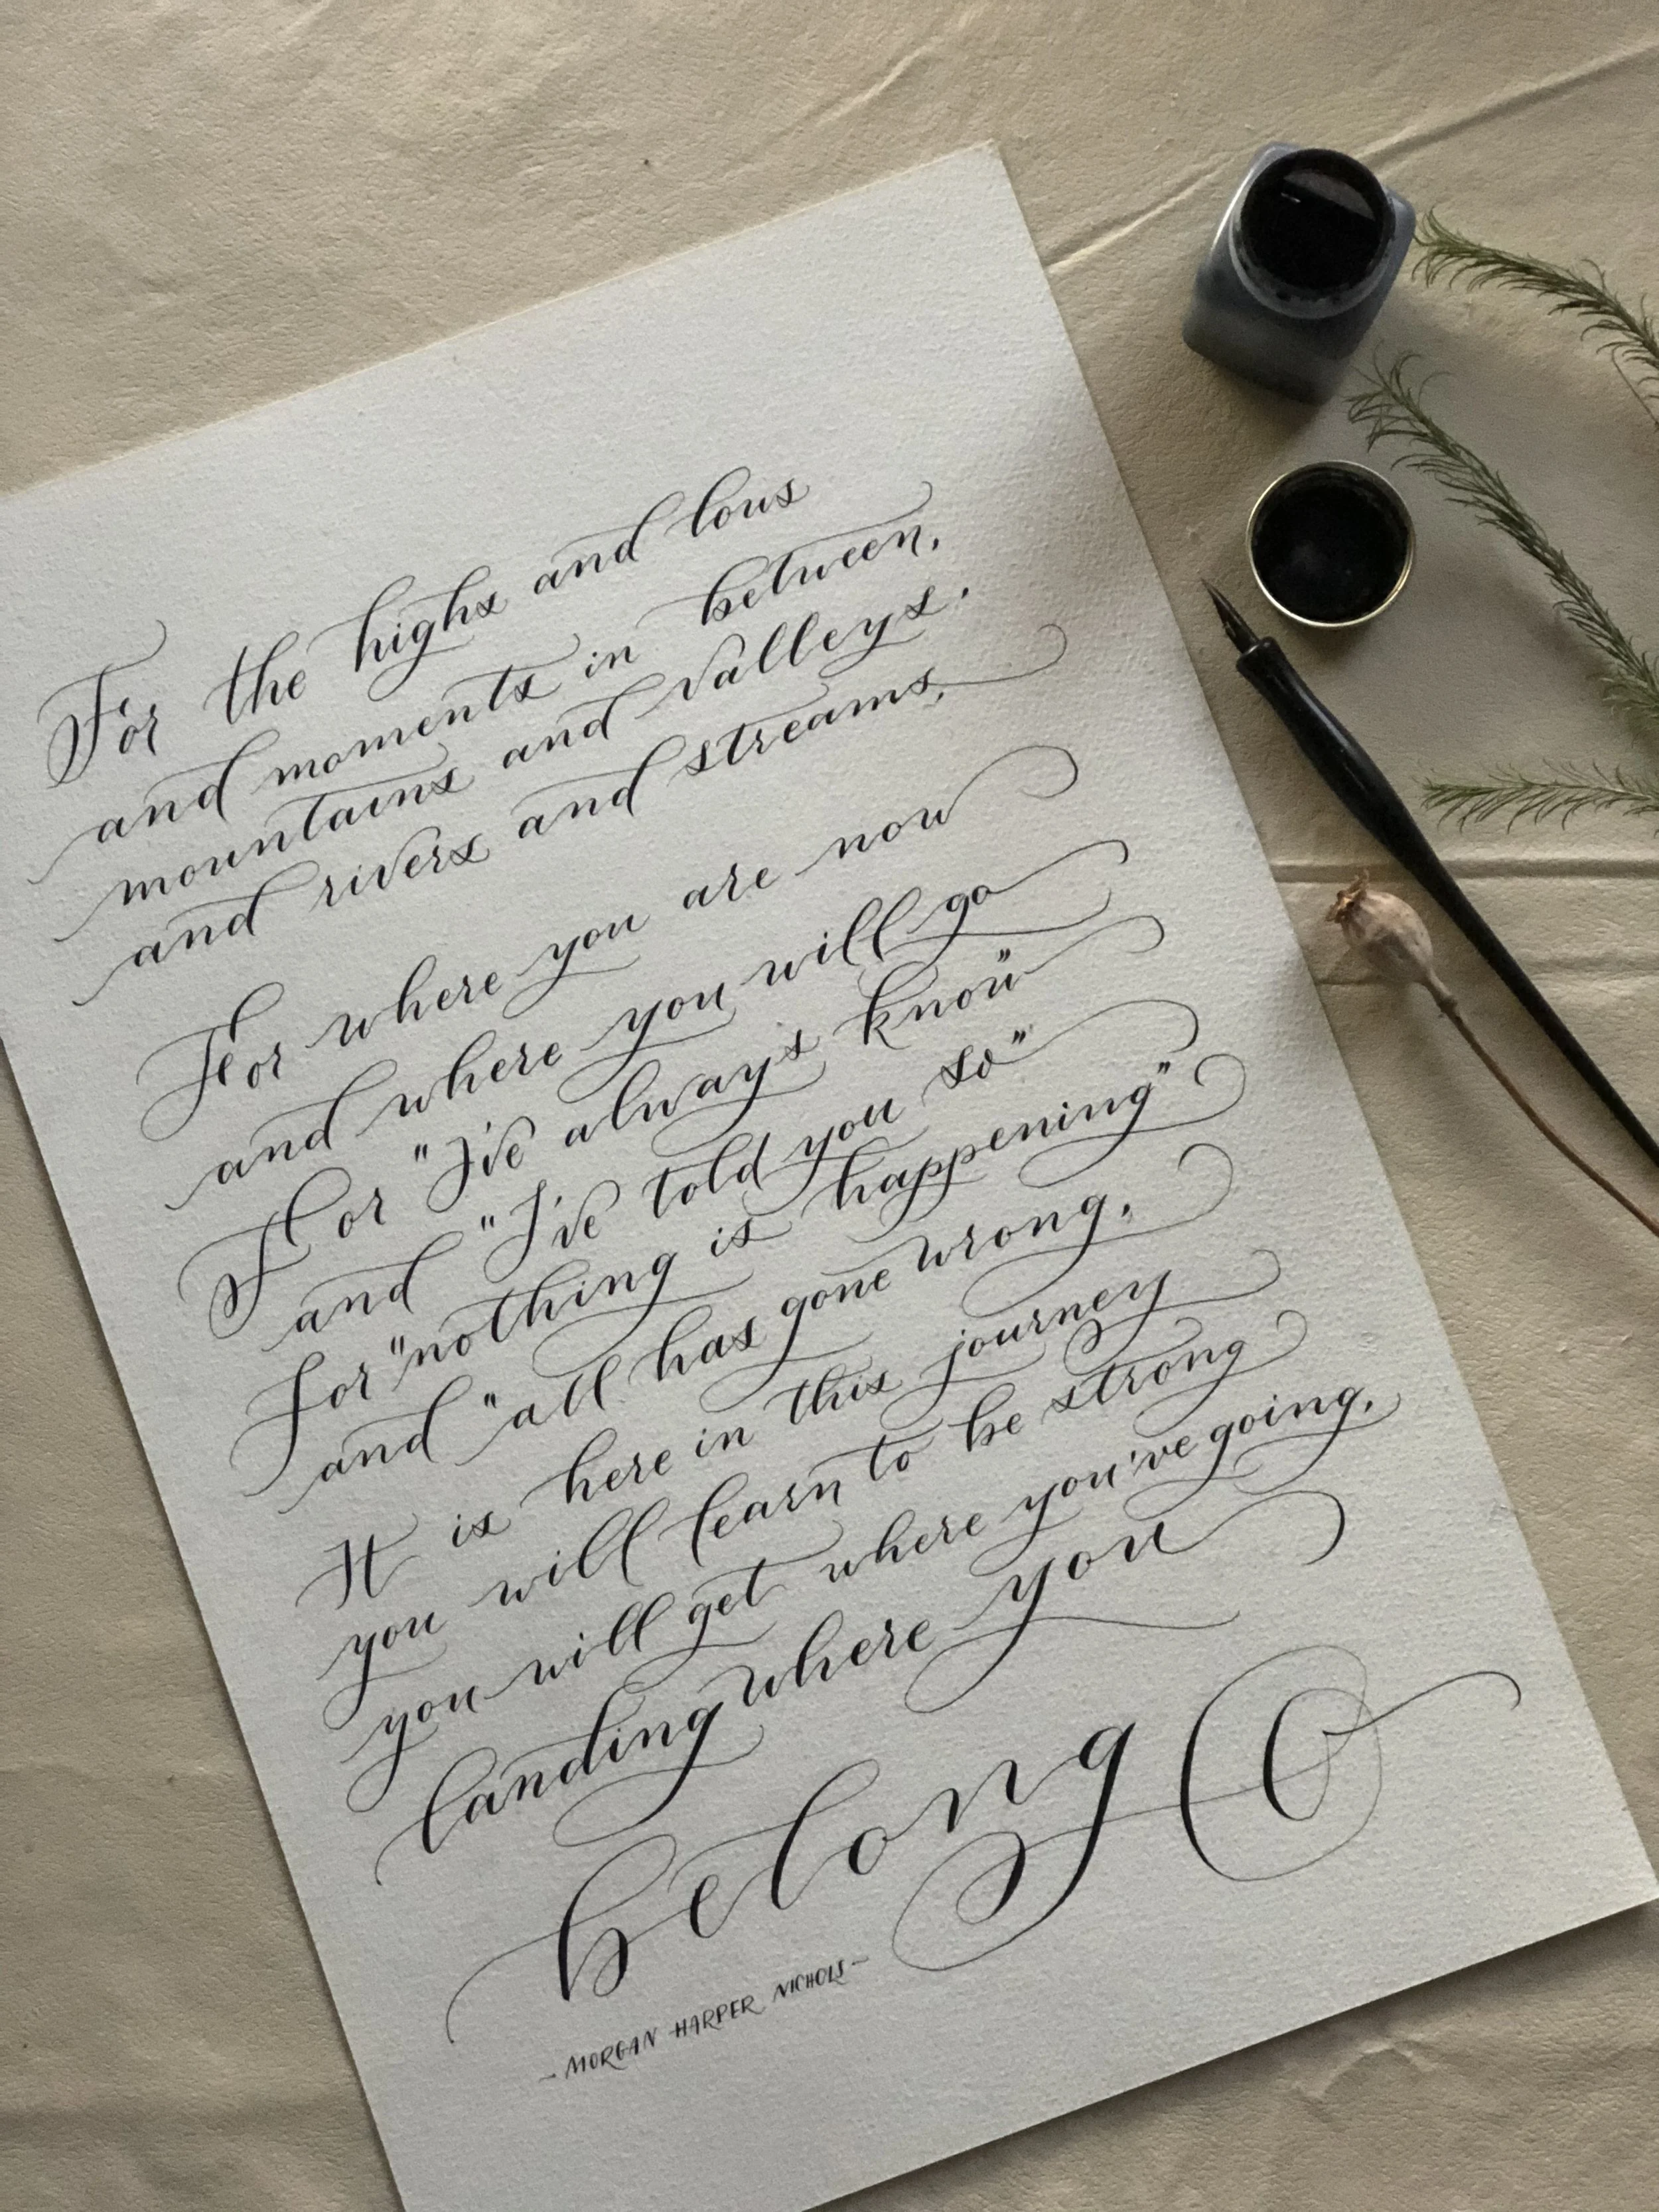 For the highs and lows
and moments in between,
mountains and valleys,
and rivers and streams,
For where you are now
and where you will go
For "I've always know"
and "I've told you so"
For "nothing is happening"
and "all has gone wrong,
It is here in this journey
you will learn to be strong
you will get where you've going,
landing where you
belong
- MORGAN HARPER NICHOLS -